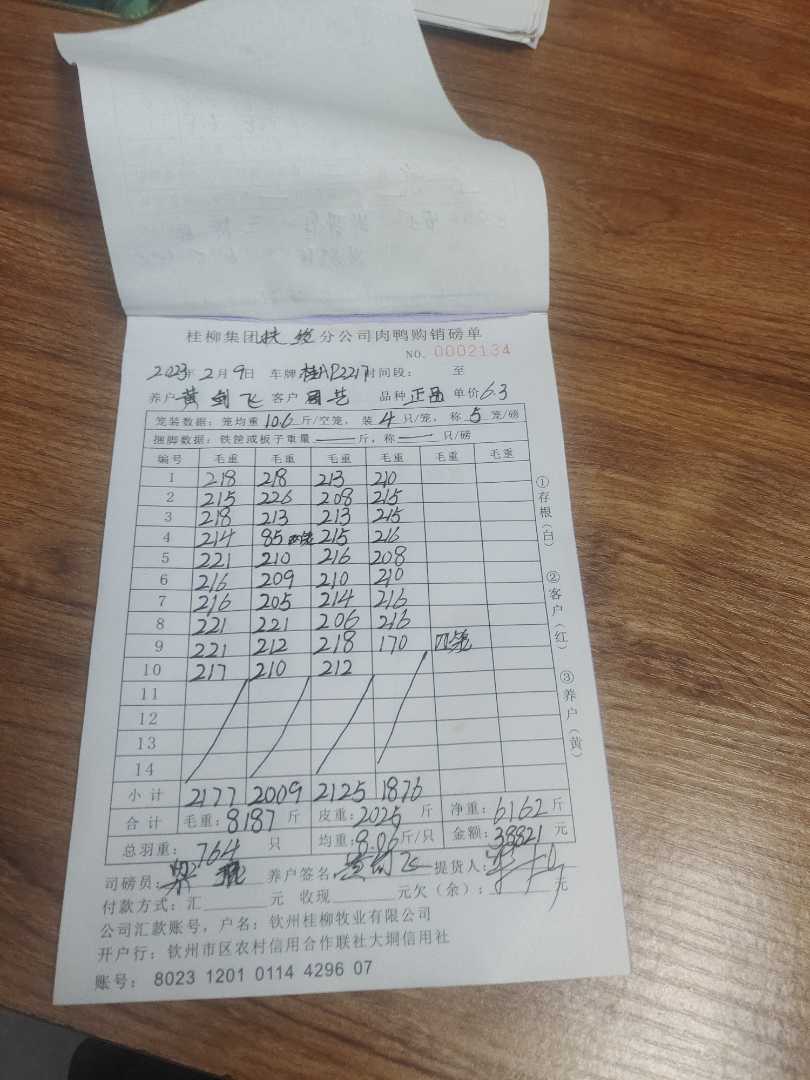 桂柳集团扶绥分公司肉鸭购销磅单
NO. 0002134
2023年2月9日 车牌桂AP2217时间段: 至
养户黄剑飞 客户 品种正品 单价6.3
笼装数据: 笼均重10.6斤/空笼, 装4只/笼, 称5笼/磅
捆脚数据: 铁筐或板子重量——斤, 称——只/磅
编号 毛重 毛重 毛重 毛重 毛重 毛重
1 218 218 213 210
2 215 226 208 215
3 218 213 213 215
4 214 85 215 216
5 221 210 216 208
6 216 209 210 210
7 216 205 214 216
8 221 221 206 216
9 221 212 218 170 四笼
10 217 210 212
11
12
13
14
小计 2177 2009 2125 1876
合计 毛重:8187斤 皮重:2025斤 净重:6162斤
总羽重: 764只 均重:8.06斤/只 金额:38821元
司磅员: 养户签名黄剑飞 提货人:
付款方式: 汇 元 收现 元欠(余): 元
公司汇款账号, 户名: 钦州桂柳牧业有限公司
开户行: 钦州市区农村信用合作联社大垌信用社
账号: 8023 1201 0114 4296 07
①存根(白)
②客户(红)
③养户(黄)